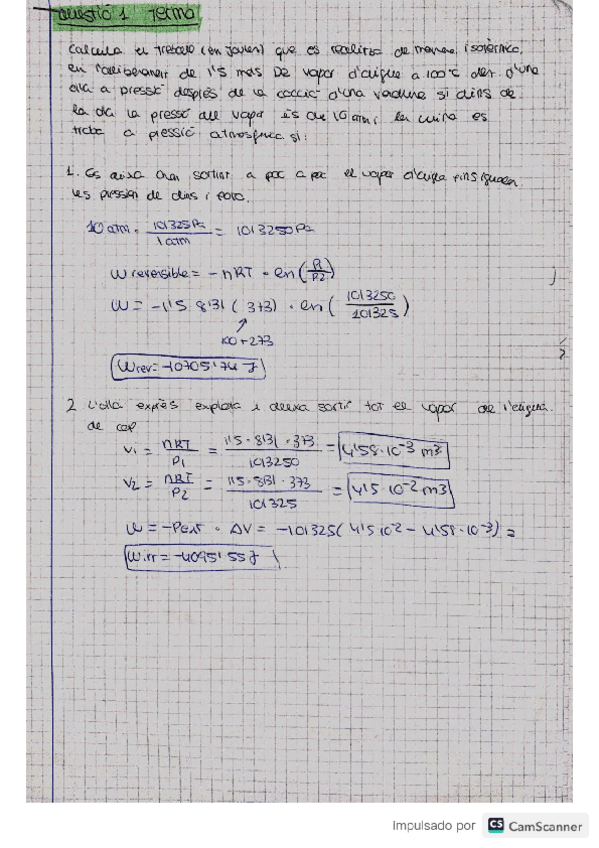 Qüestió 1 Termo
Calcula el treball (en joules) que es realitza de manera isotèrmica,
en l'alliberament de 1'5 mols De vapor d'aigua a 100°C des d'una
olla a pressió després de la cocció d'una verdura si dins de
la olla la pressió del vapor és de 10 atm i la cuina es
troba a pressió atmosfèrica si:
1. Es deixa anar sortint a poc a poc el vapor d'aigua fins igualar
les pressions de dins i fora.
10 atm · 101325Pa / 1 atm = 1013250 Pa
W reversible = -nRT · ln(P1/P2)
W = -1'5 · 8'31 (373) · ln(1013250/101325)
100+273
Wrev = -10705'74 J
2 L'olla exprés explota i deixa sortir tot el vapor de l'aigua
de cop
V1 = nRT/P1 = 1'5 · 8'31 · 373/1013250 = 4'58·10-3 m3
V2 = nRT/P2 = 1'5 · 8'31 · 373/101325 = 4'5·10-2 m3
W = -Pext · ΔV = -101325(4'5·10-2 - 4'58·10-3) =
Wirr = -4095'55J
Impulsado por CS CamScanner